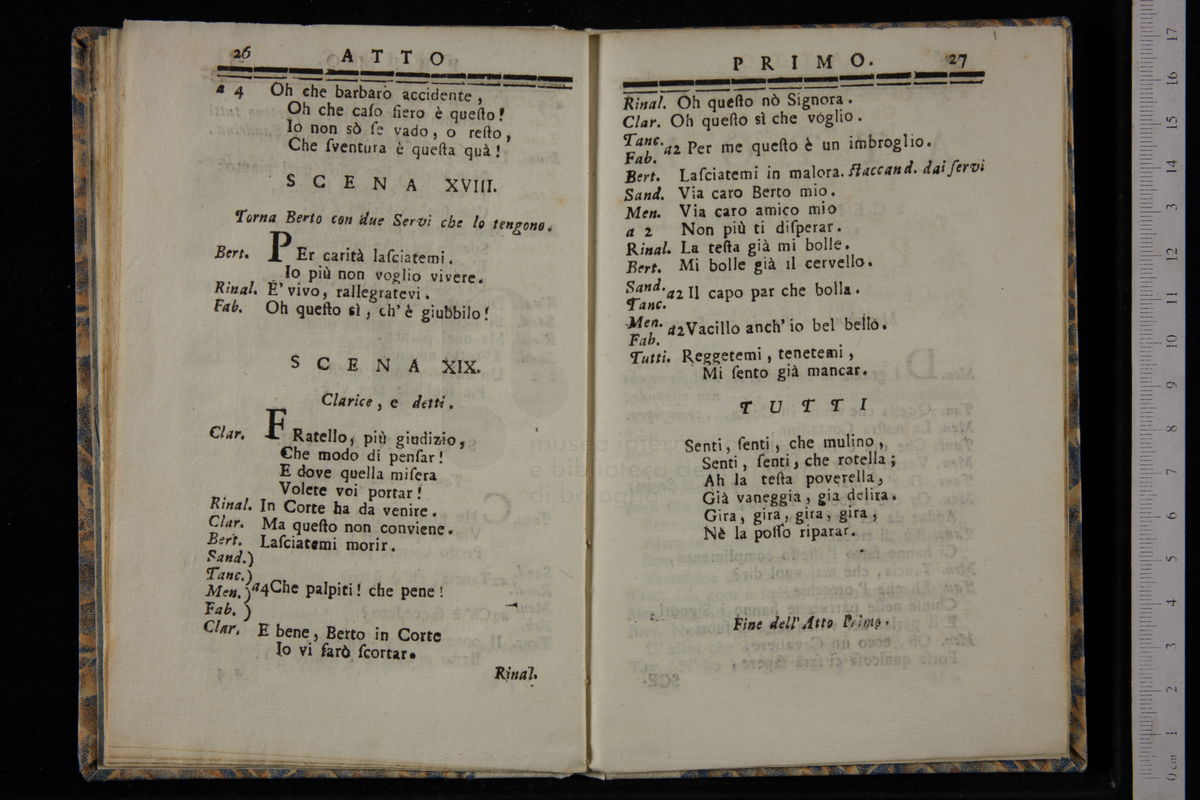 26 ATTO
a 4 Oh che barbaro accidente,
Oh che caſo fiero è queſto!
Io non sò ſe vado, o reſto,
Che ſventura è queſta quà!
SCENA XVIII.
Torna Berto con due Servi che lo tengono.
Bert. PEr carità laſciatemi.
Io più non voglio vivere.
Rinal. E' vivo, rallegratevi.
Fab. Oh queſto sì, ch' è giubbilo!
SCENA XIX.
Clarice, e detti.
Clar. FRatello, più giudizio,
Che modo di penſar!
E dove quella miſera
Volete voi portar!
Rinal. In Corte ha da venire.
Clar. Ma queſto non conviene.
Bert. Laſciatemi morir.
Sand.)
Tanc.)
Men.) a4 Che palpiti! che pene!
Fab. )
Clar. E bene, Berto in Corte
Io vi farò ſcortar.
Rinal.
PRIMO. 27
Rinal. Oh queſto nò Signora.
Clar. Oh queſto sì che voglio.
Tanc. a2 Per me queſto è un imbroglio.
Fab.
Bert. Laſciatemi in malora. ſtaccand. dai ſervi
Sand. Via caro Berto mio.
Men. Via caro amico mio
a 2 Non più ti diſperar.
Rinal. La teſta già mi bolle.
Bert. Mi bolle già il cervello.
Sand. a2 Il capo par che bolla.
Tanc.
Men. a2 Vacillo anch' io bel bello.
Fab.
Tutti. Reggetemi, tenetemi,
Mi ſento già mancar.
TUTTI
Senti, ſenti, che mulino,
Senti, ſenti, che rotella;
Ah la teſta poverella,
Già vaneggia, gia delira.
Gira, gira, gira, gira,
Nè la poſſo riparar.
Fine dell' Atto Primo.
museo inter
e biblioteca de
di bologna
0 cm 1 2 3 4 5 6 7 8 9 10 11 12 13 14 15 16 17